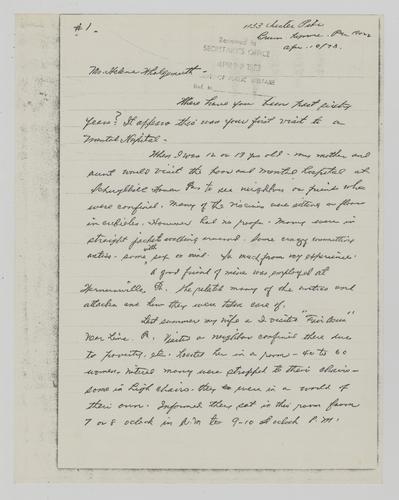 #1.
1133 Chester Pike
Crum Lynne. Pa.
Apr. 1973.
Received in
SECRETARY'S OFFICE
OF PUBLIC WELFARE
Ref. to
Ms. Helene Wohlgemuth -
Where have you been past sixty
years? It appears this was your first visit to a
Mental Hospital.
When I was 12 or 13 yrs old - my mother and
aunt would visit the poor and mental hospital at
Schuylkill Haven Pa. to see neighbors or friends who
were confined. Many of the were sitting on floors
in cubicles. However had no proof. Many were in
straight jackets walking around. Some crazy committing
antics - some with sex in mind. So much from my experience.
A good friend of mine was employed at
Wernersville, Pa. He related many of the antics and
attacks and how they were taken care of.
Last summer my wife & I visited "Fair Acres"
near Lima Pa. Visited a neighbor confined there due
to poverty, etc. Located her in a room - 40 to 60
women. Noticed many were strapped to their chairs -
some in high chairs. they were in a world of
their own. Informed they sat in this room from
7 or 8 oclock in A.M. to 9-10 oclock P.M.